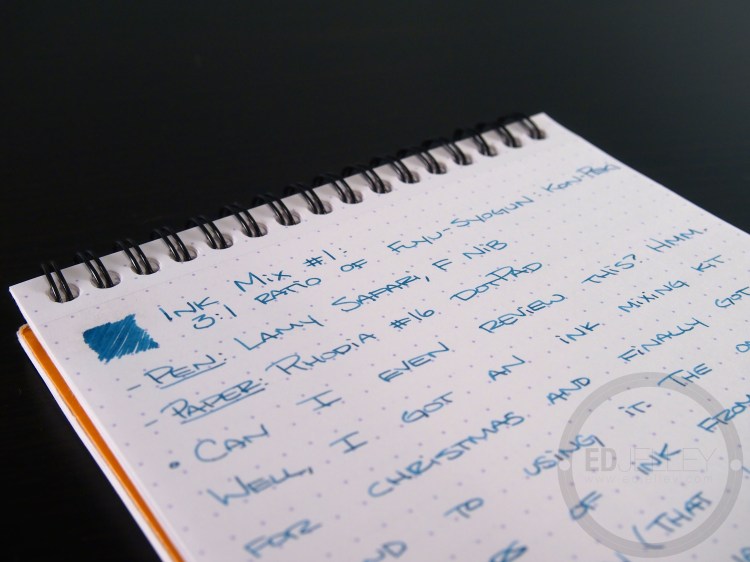 INK MIX #1:
3:1 RATIO OF FUYU-SYOGUN: KON-PEKI
- PEN: LAMY SAFARI, F NIB
- PAPER: RHODIA #16 DOTPAD
• CAN I EVEN REVIEW THIS? HMM.
WELL, I GOT AN INK MIXING KIT
FOR CHRISTMAS AND FINALLY GOT
TO USING IT. THE
OF INK FROM
(THAT
ED JELLEY